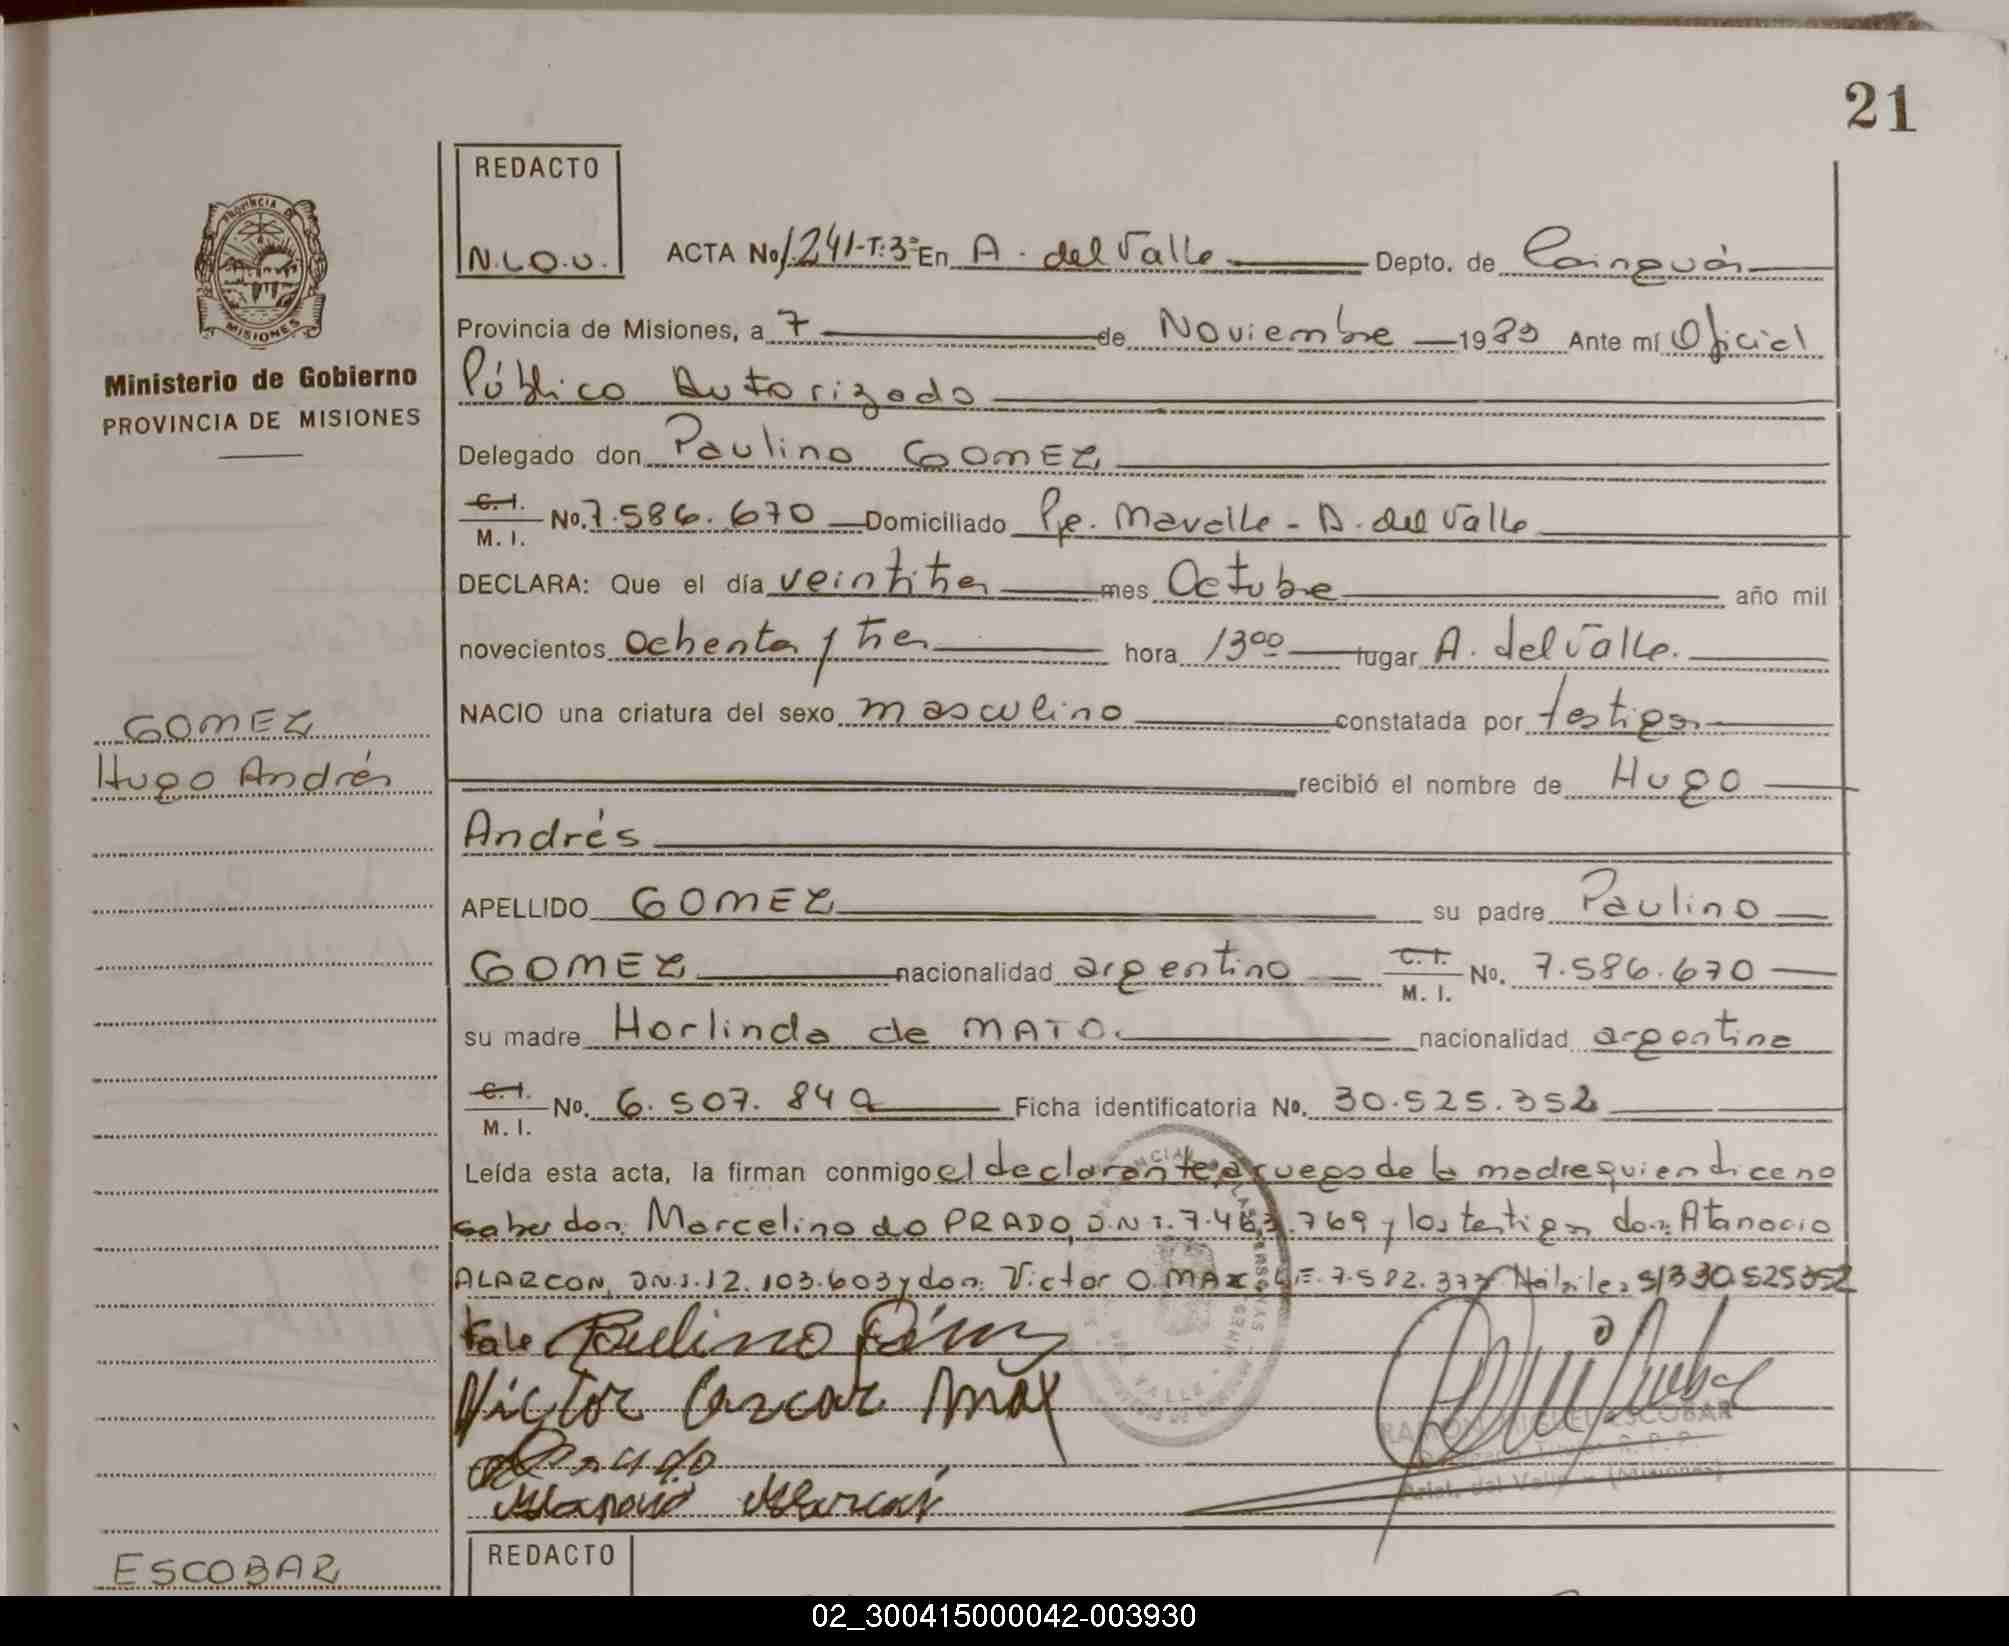 21
REDACTO
N.L.O.U.
PROVINCIA DE
MISIONES
Ministerio de Gobierno
PROVINCIA DE MISIONES
ACTA No 1.241-T:3º En A. del Valle Depto. de Cainguás
Provincia de Misiones, a 7 de Noviembre 1983 Ante mí Oficial
Público Autorizado
Delegado don Paulino GOMEZ
C.I. M.I. No. 7.586.670 Domiciliado Pje. Mavalle - A. del Valle
DECLARA: Que el día veintitres mes Octubre año mil
novecientos ochenta y tres hora 13 00 lugar A. del Valle.
NACIO una criatura del sexo masculino constatada por testigos
recibió el nombre de Hugo
Andrés
APELLIDO GOMEZ su padre Paulino
GOMEZ nacionalidad argentino C.I. M.I. No. 7.586.670
su madre Horlinda de MATO. nacionalidad argentina
C.I. M.I. No. 6.507.849 Ficha identificatoria No. 30.525.352
Leída esta acta, la firman conmigo el declarante a ruego de la madre quien dice no
saber don: Marcelino do PRADO, D.N.I. 7.463.769 y los testigos don: Atanacio
ALARCON, D.N.I. 12.103.603 y don: Victor O. MAX L.E. 7.582.373 Hábiles s/b 30.525352
Vale Paulino Gómez
Victor Oscar Max
Atanacio Alarcón
RAMON MIGUEL ESCOBAR
GOMEZ
Hugo Andrés
ESCOBAR
REDACTO
02_300415000042-003930